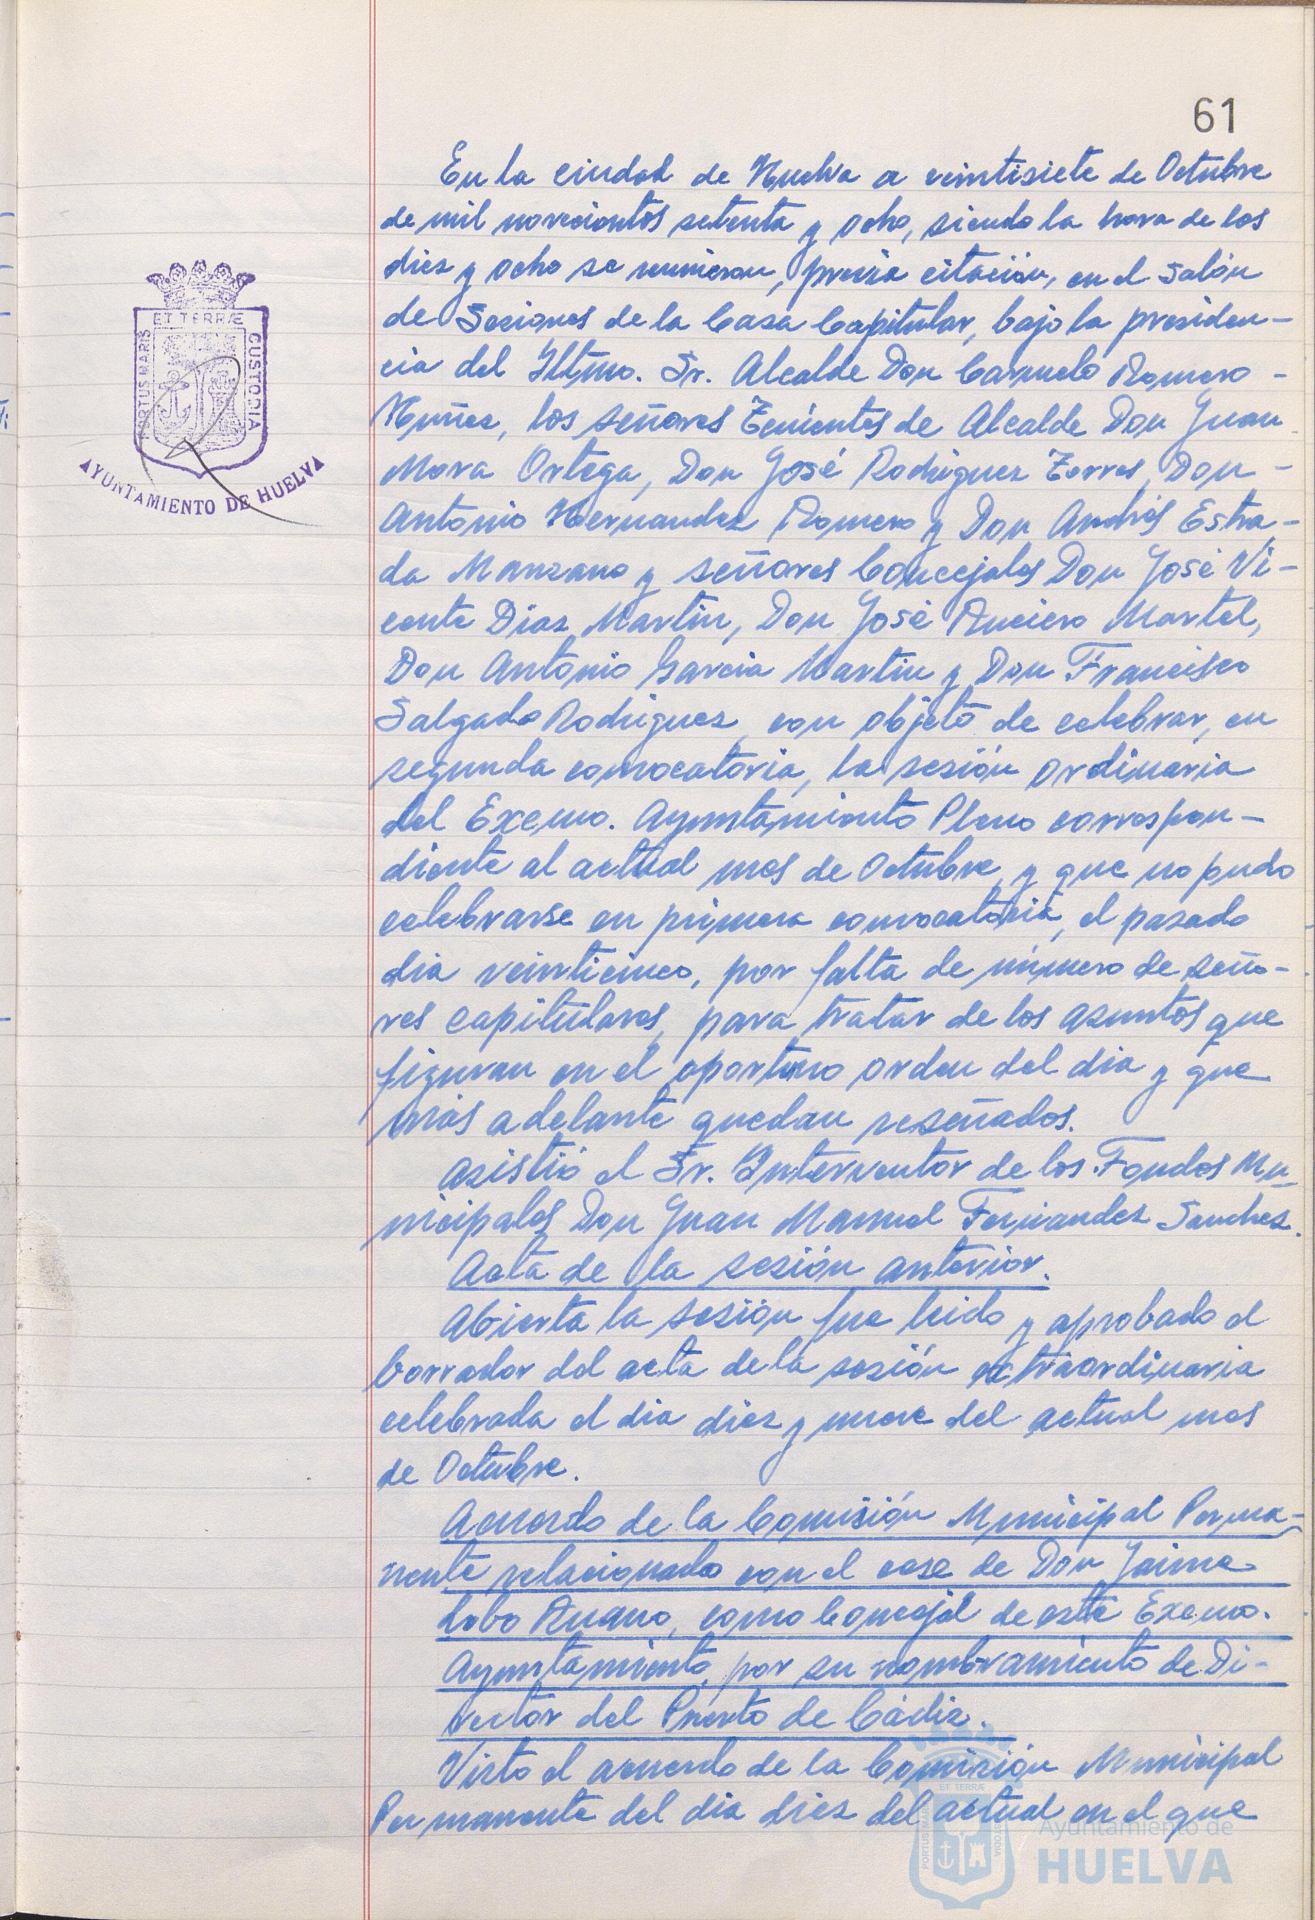 61
En la ciudad de Huelva a veintisiete de Octubre
de mil novecientos setenta y ocho, siendo la hora de las
diez y ocho se reunieron, previa citación, en el Salón
de Sesiones de la Casa Capitular, bajo la presiden-
cia del Iltmo. Sr. Alcalde Don Carmelo Romero -
Nuñez, los señores Tenientes de Alcalde Don Juan
Mora Ortega, Don José Rodriguez Torres, Don -
Antonio Hernandez Romero y Don Andrés Estra-
da Manzano y señores Concejales Don José Vi-
cente Diaz Martin, Don José Ruciero Martel,
Don Antonio Garcia Martin y Don Francisco
Salgado Rodriguez, con objeto de celebrar, en
segunda convocatoria, la sesión ordinaria
del Excmo. Ayuntamiento Pleno correspon-
diente al actual mes de Octubre, y que no pudo
celebrarse en primera convocatoria, el pasado
dia veinticinco, por falta de número de seño-
res capitulares, para tratar de los asuntos que
figuran en el oportuno orden del dia y que
más adelante quedan reseñados.
Asistió el Sr. Interventor de los Fondos Mu-
nicipales Don Juan Manuel Fernandez Sanchez.
Acta de la sesión anterior.
Abierta la sesión fue leido y aprobado el
borrador del acta de la sesión extraordinaria
celebrada el dia diez y nueve del actual mes
de Octubre.
Acuerdo de la Comisión Municipal Perma-
nente relacionado con el cese de Don Jaime
Lobo Ruano, como Concejal de este Excmo.
Ayuntamiento, por su nombramiento de Di-
rector del Puerto de Cádiz.
Visto el acuerdo de la Comisión Municipal
Permanente del dia diez del actual en el que
ET TERRÆ
PORTUS MARIS
CUSTODIA
AYUNTAMIENTO DE HUELVA
ET TERRÆ
PORTUS MARIS
CUSTODIA
Ayuntamiento de
HUELVA